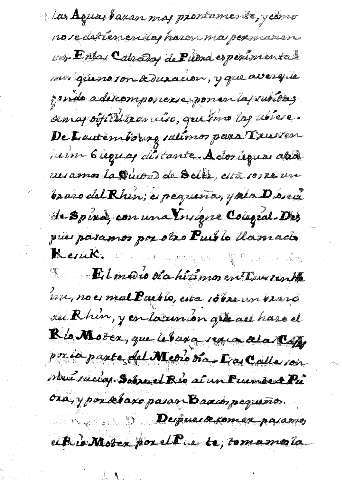 las Aguas bazan mas prontamente, y como
no se detienen das hazen mas permanen
cia. En las Calzadas de Piedra experimenta
mos que no son de duracion, y que a
descomponerse, ponen las subidas
de mas dificil transito, que sino las ubiese.
De Lautembourg salimos para Trussen
heim 6 leguas distante. A dos leguas atra
vesamos la Ciudad de Seltz, està sobre un
brazo del Rhin; es pequeña, y de la Dioces
de Spira, con una Ynsigne Colegial. Des
pues pasamos por otro Pueblo llamado
El medio dia hizimos en Trussenh
eim, no es mal Pueblo, esta sobre un brazo
del Rhin, y en la union que aell haze el
Rio Moter, que le baxa serca de la
por la parte del Medio dia. Las Calles son
mui sucias. Sobre el Rio ai un Puente de Pie
dra, y por debaxo pasan Barcos pequeños.
Despues de comer pasamos
el Rio Moter por el Puente; tomamos la